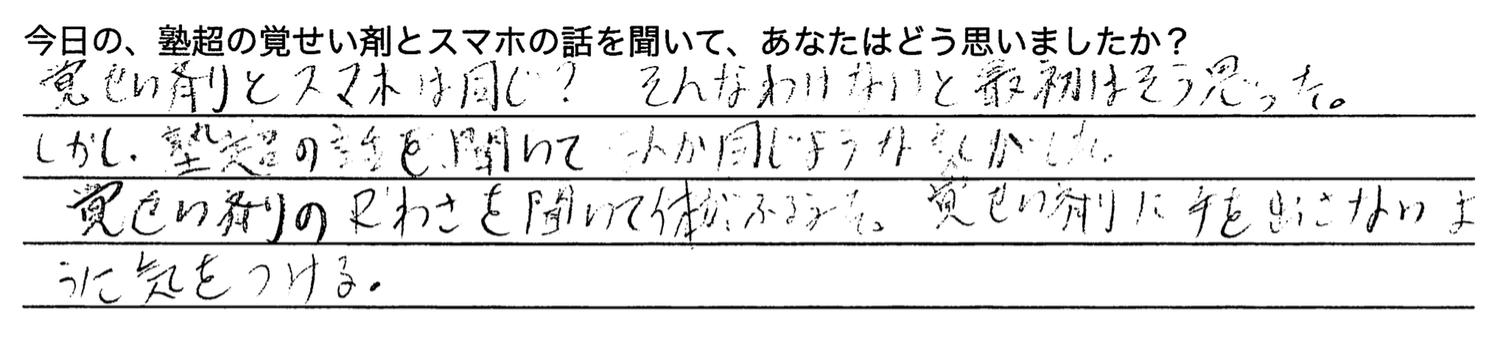 今日の、塾超の覚せい剤とスマホの話を聞いて、あなたはどう思いましたか？
覚せい剤とスマホは同じ？ そんなわけないと最初はそう思った。
しかし、塾超の話を聞いて か同じような気がした。
覚せい剤の こわさを聞いて体がふるえた。覚せい剤に手を出さないよ
うに気をつける。